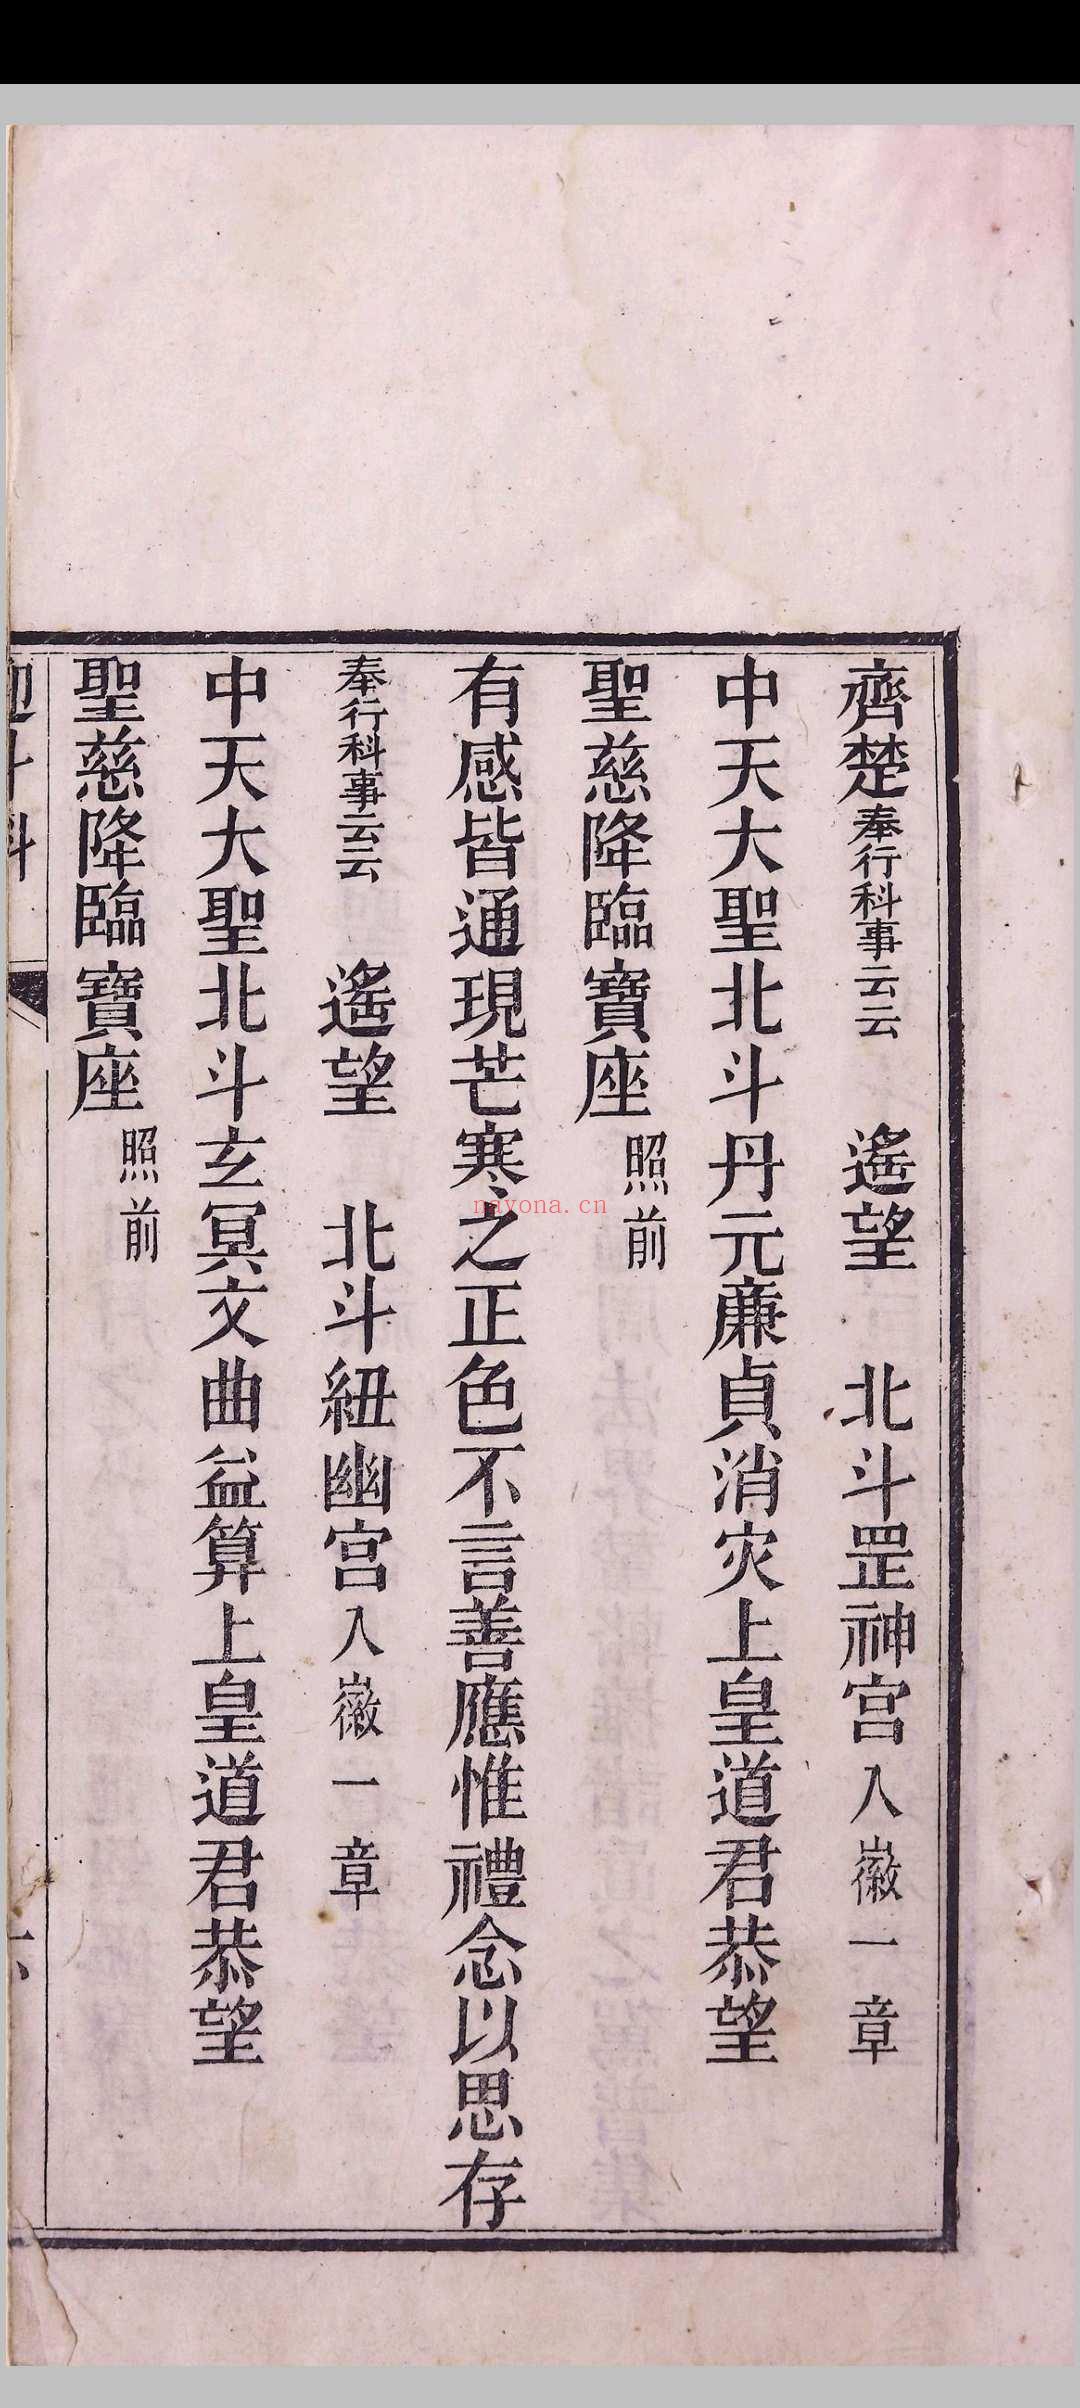 齊楚奉行科事云云 遙望 北斗罡神宮入徽一章
中天大聖北斗丹元廉貞消灾上皇道君恭望
聖慈降臨寶座照前
有感皆通現芒寒之正色不言善應惟禮念以思存
奉行科事云云 遙望 北斗紐幽宮入徽一章
中天大聖北斗玄冥文曲益算上皇道君恭望
聖慈降臨寶座照前
斗科
六
nayona.cn